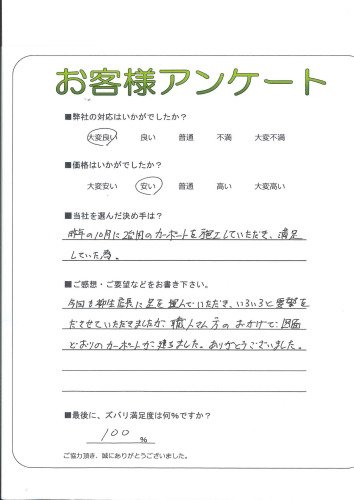 お客様アンケート
■弊社の対応はいかがでしたか?
大変良い 良い 普通 不満 大変不満
■価格はいかがでしたか?
大変安い 安い 普通 高い 大変高い
■当社を選んだ決め手は?
昨年の10月に2台用のカーポートを施工していただき、満足
していた為。
■ご感想・ご要望などをお書き下さい。
今回も柳生店長に足を運んでいただき、いろいろと要望を
ださせていただきましたが、職人さん方のおかげで、図面
どおりのカーポートが建ちました。ありがとうございました。
■最後に、ズバリ満足度は何%ですか?
100 %
ご協力頂き、誠にありがとうございました。